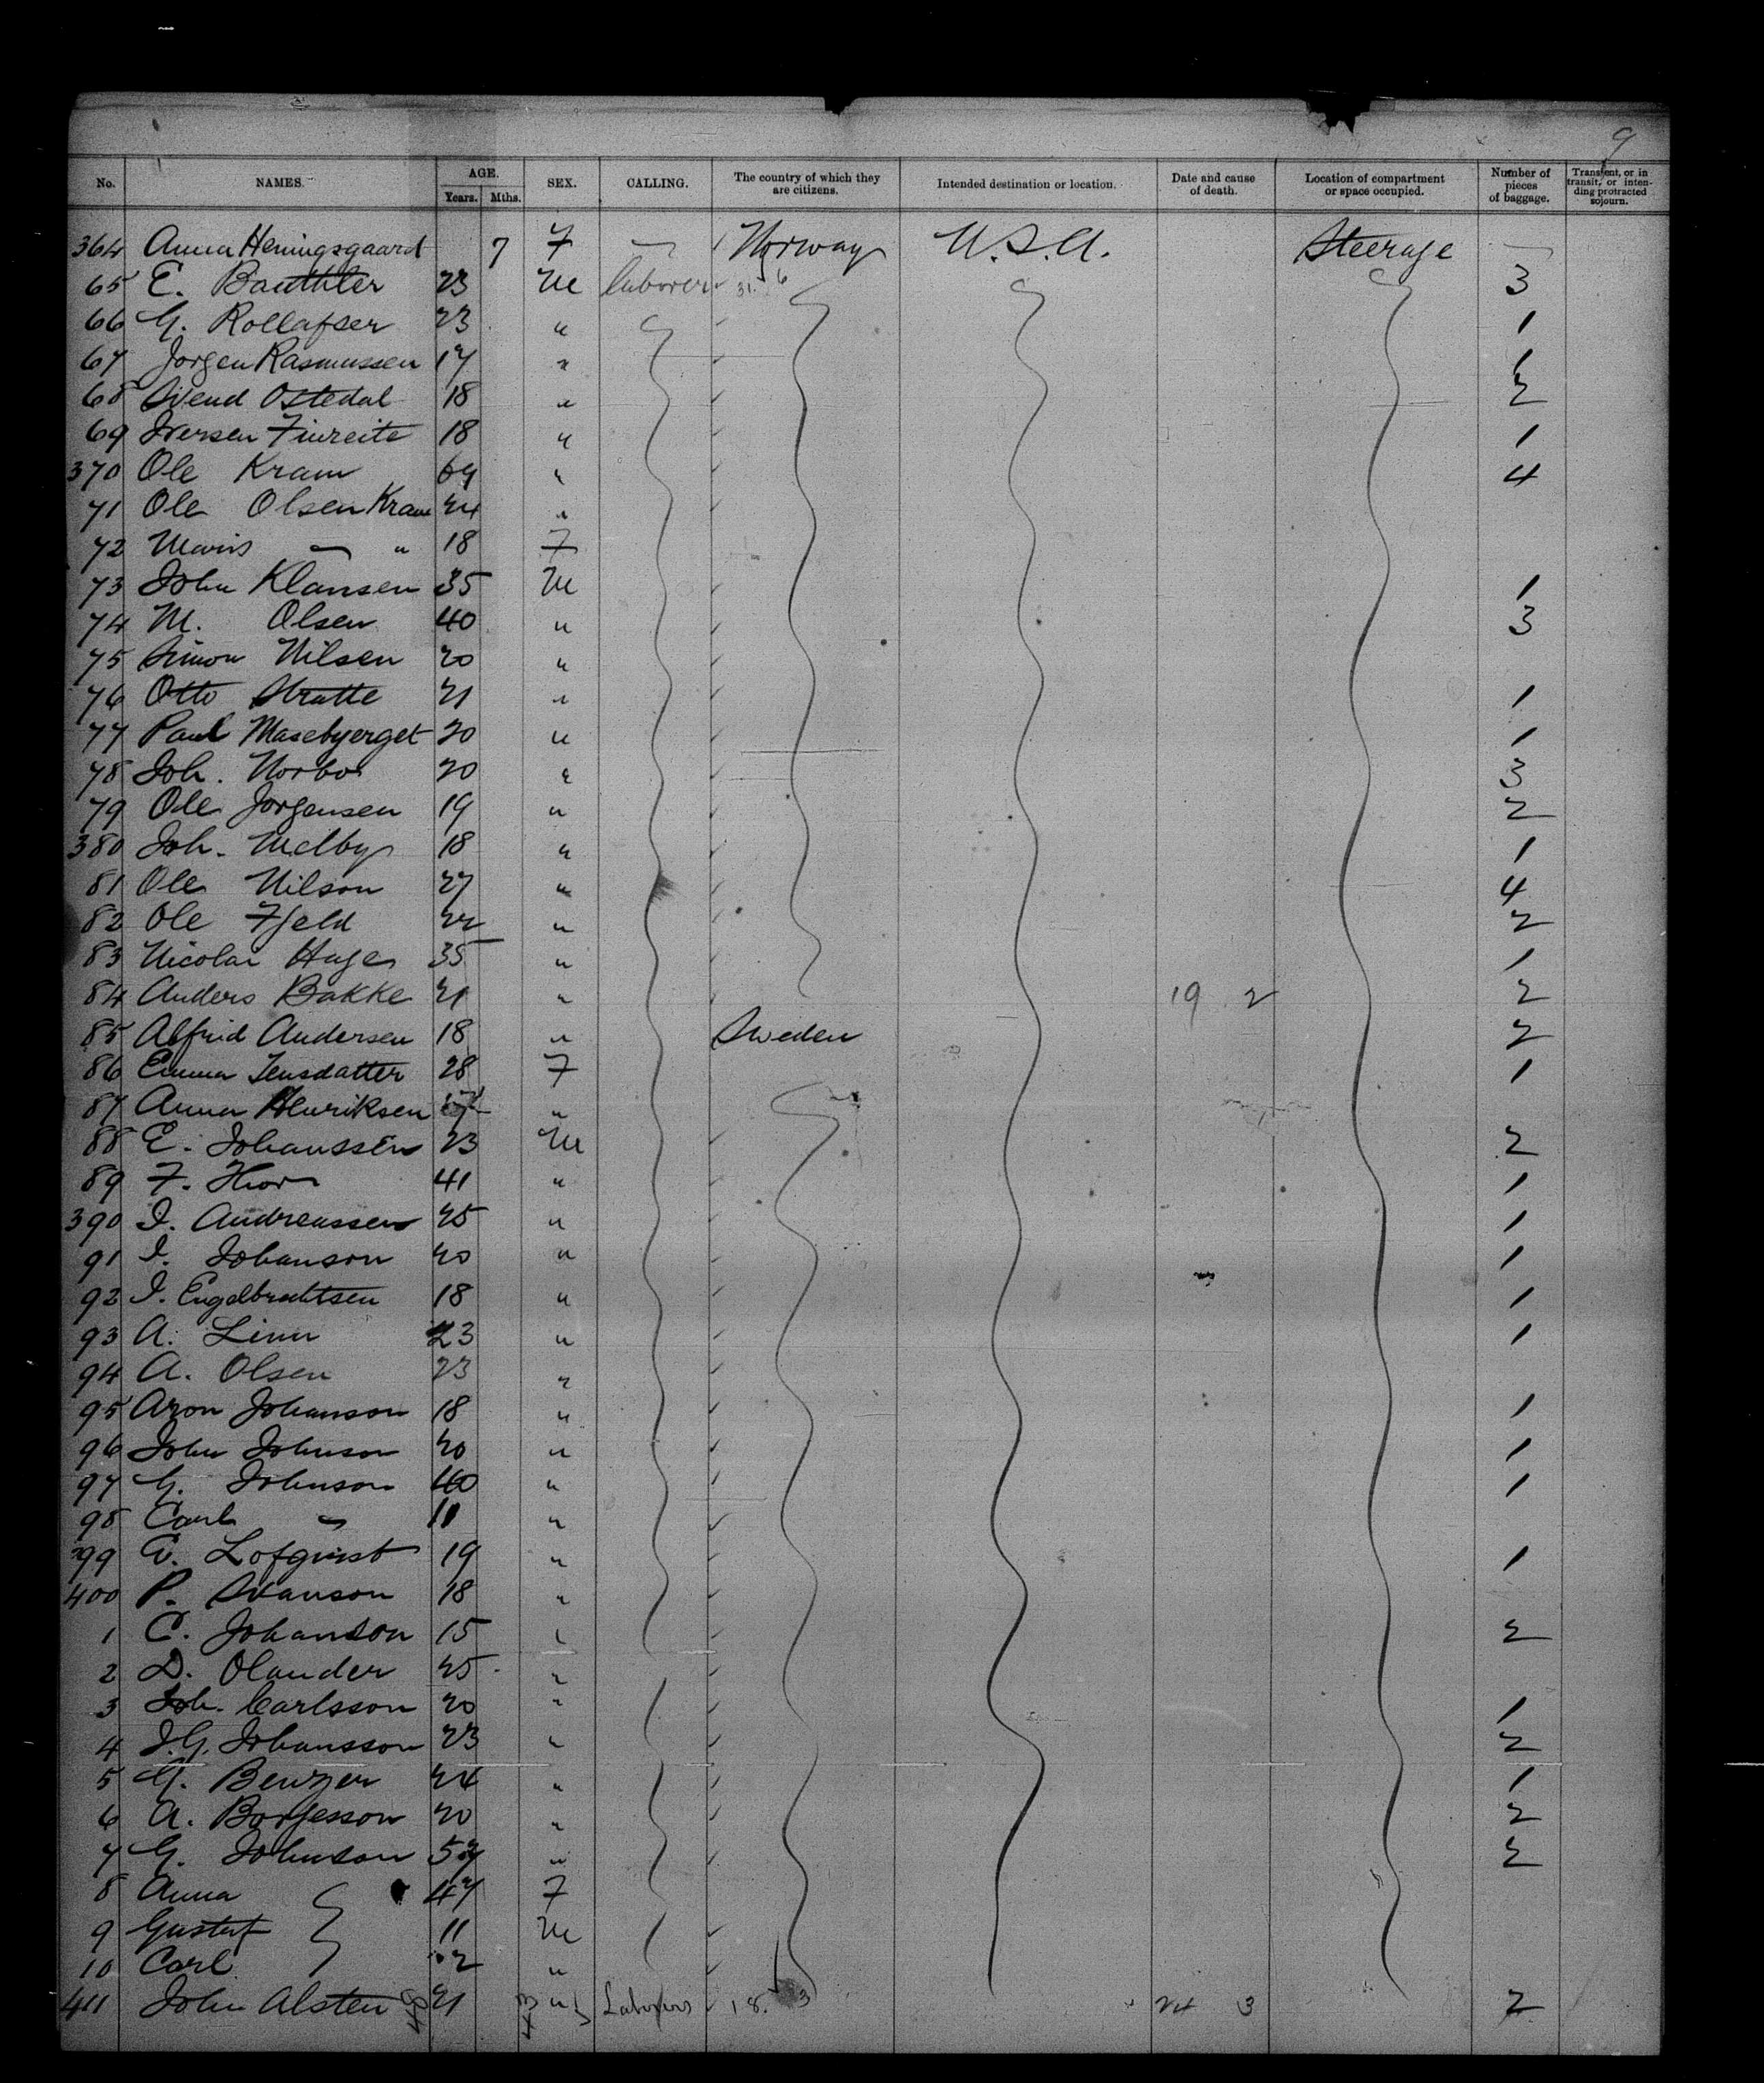 9
No. NAMES. AGE. Years. Mths. SEX. CALLING. The country of which they are citizens. Intended destination or location. Date and cause of death. Location of compartment or space occupied. Number of pieces of baggage. Transient, or in transit, or intending protracted sojourn.
364 Anna Heningsgaard 7 F — Norway U.S.A. Steerage —
65 E. Bauthler 23 M laborer 3
66 G. Rollafser 23 " 1
67 Jorgen Rasmussen 17 " 1
68 Svend Ostedal 18 " 2
69 Iversen Finreite 18 " 1
370 Ole Kram 69 " 4
71 Ole Olsen Kram 24 "
72 — " 18 F
73 John Klansen 35 M 1
74 M. Olsen 40 " 3
75 Simon Nilsen 20 "
76 Otto Stratte 21 " 1
77 Paul Masebyerget 20 " 1
78 Joh. Norbo 20 " 3
79 Ole Jorgensen 19 " 2
380 Joh. Melby 18 " 1
81 Ole Nilson 27 " 4
82 Ole Fjeld 22 " 2
83 Nicolai Hage 35 " 1
84 Anders Bakke 21 " 19 2 2
85 Alfrid Andersen 18 " Sweden 2
86 Emma Jensdatter 28 F 1
87 Anna Henriksen "
88 E. Johanssen 23 M 2
89 F. Hior 41 " 1
390 I. Andreassen 25 " 1
91 I. Johanson 20 " 1
92 I. Engelbrechtsen 18 " 1
93 A. Linn 23 " 1
94 A. Olsen 23 "
95 Aron Johanson 18 " 1
96 John Johnson 20 " 1
97 G. Johnson 40 " 1
98 Carl " 11 "
399 E. Lofquist 19 " 1
400 P. Svanson 18 "
1 C. Johanson 15 " 2
2 D. Olander 25 "
3 Joh. Carlsson 20 " 1
4 J.G. Johansson 23 " 2
5 G. Benzer 24 " 1
6 A. Borjesson 20 " 2
7 G. Johnson 57 " 2
8 Anna 47 F
9 Gustaf 11 M
10 Carl "
411 John Alsten 48 21 43 " 5 Laborers 18. 3 24 3 2